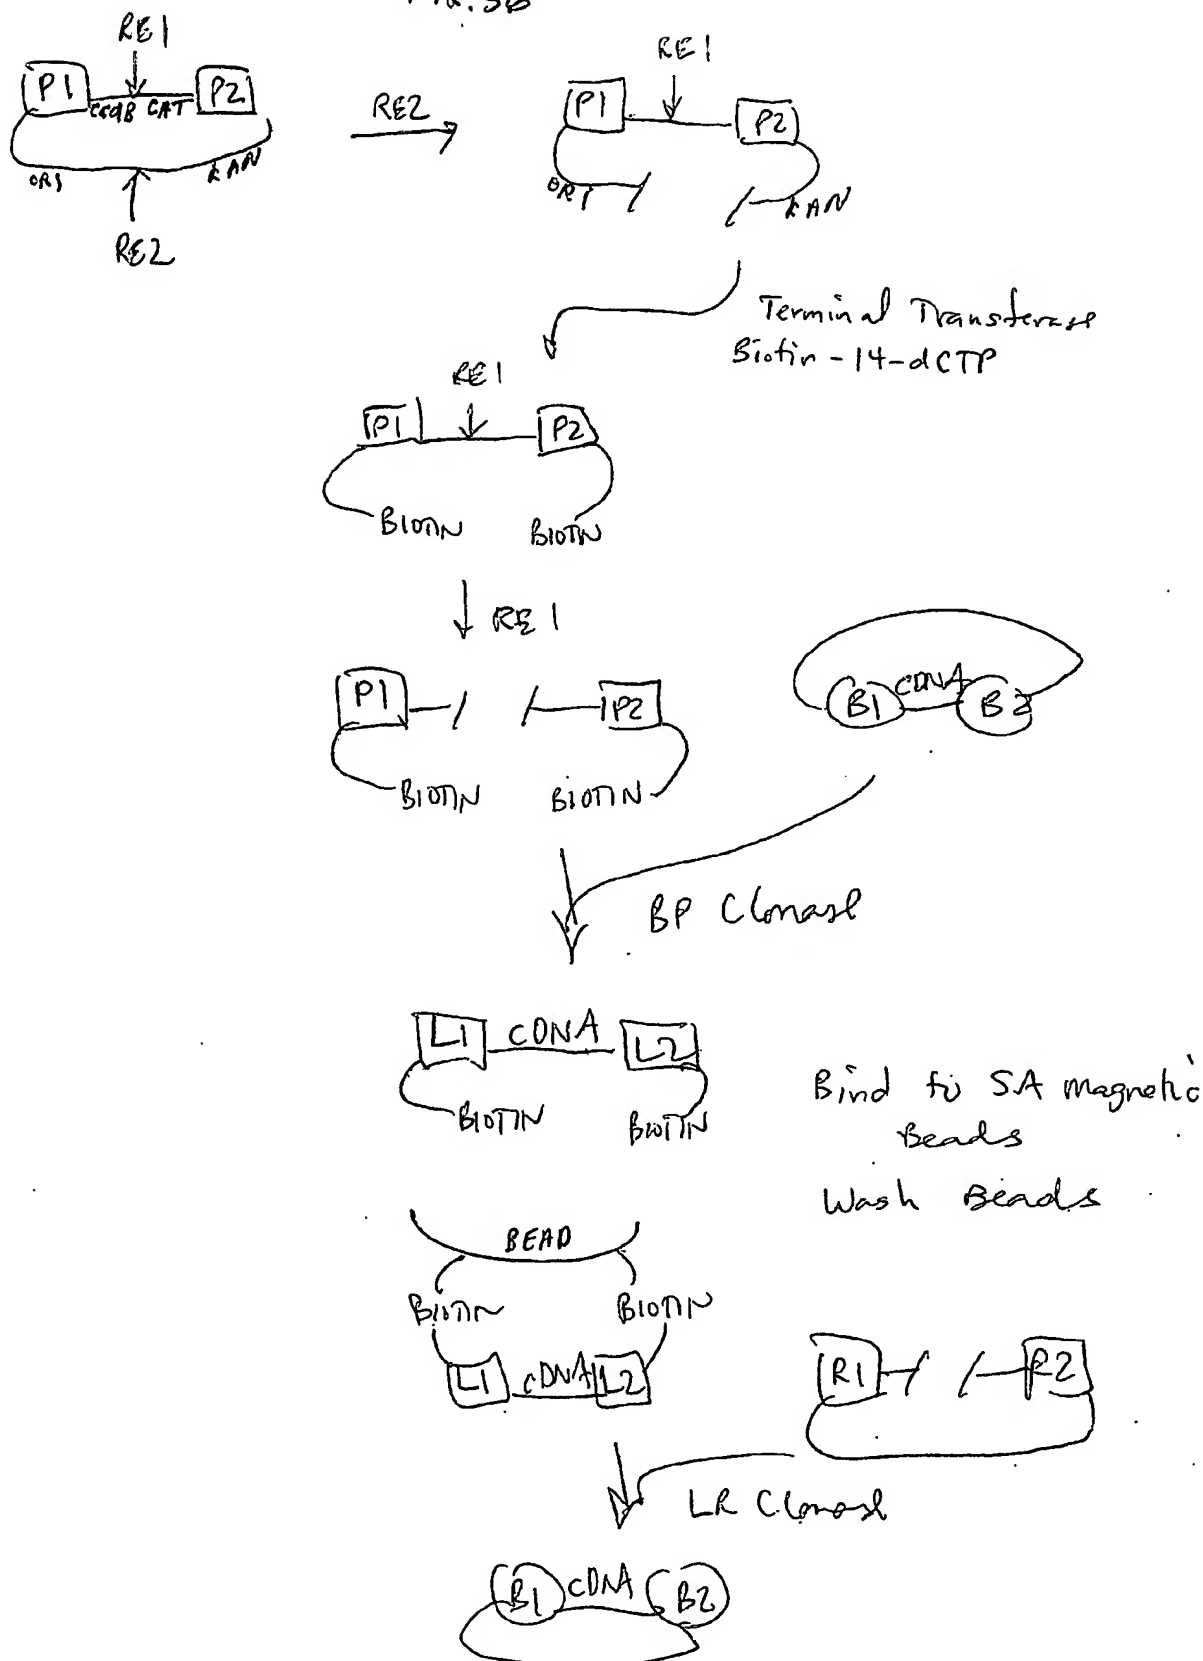 FIG. 5B
RE1
P1 ccdB CAT P2
ORI KAN
RE2
RE2
RE1
P1 P2
ORI KAN
Terminal Transferase
Biotin-14-dCTP
RE1
P1 P2
BIOTIN BIOTIN
RE1
P1 P2
BIOTIN BIOTIN
B1 cDNA B2
BP Clonase
L1 cDNA L2
BIOTIN BIOTIN
Bind to SA magnetic
Beads
Wash Beads
BEAD
BIOTIN BIOTIN
L1 cDNA L2
R1 R2
LR Clonase
B1 cDNA B2